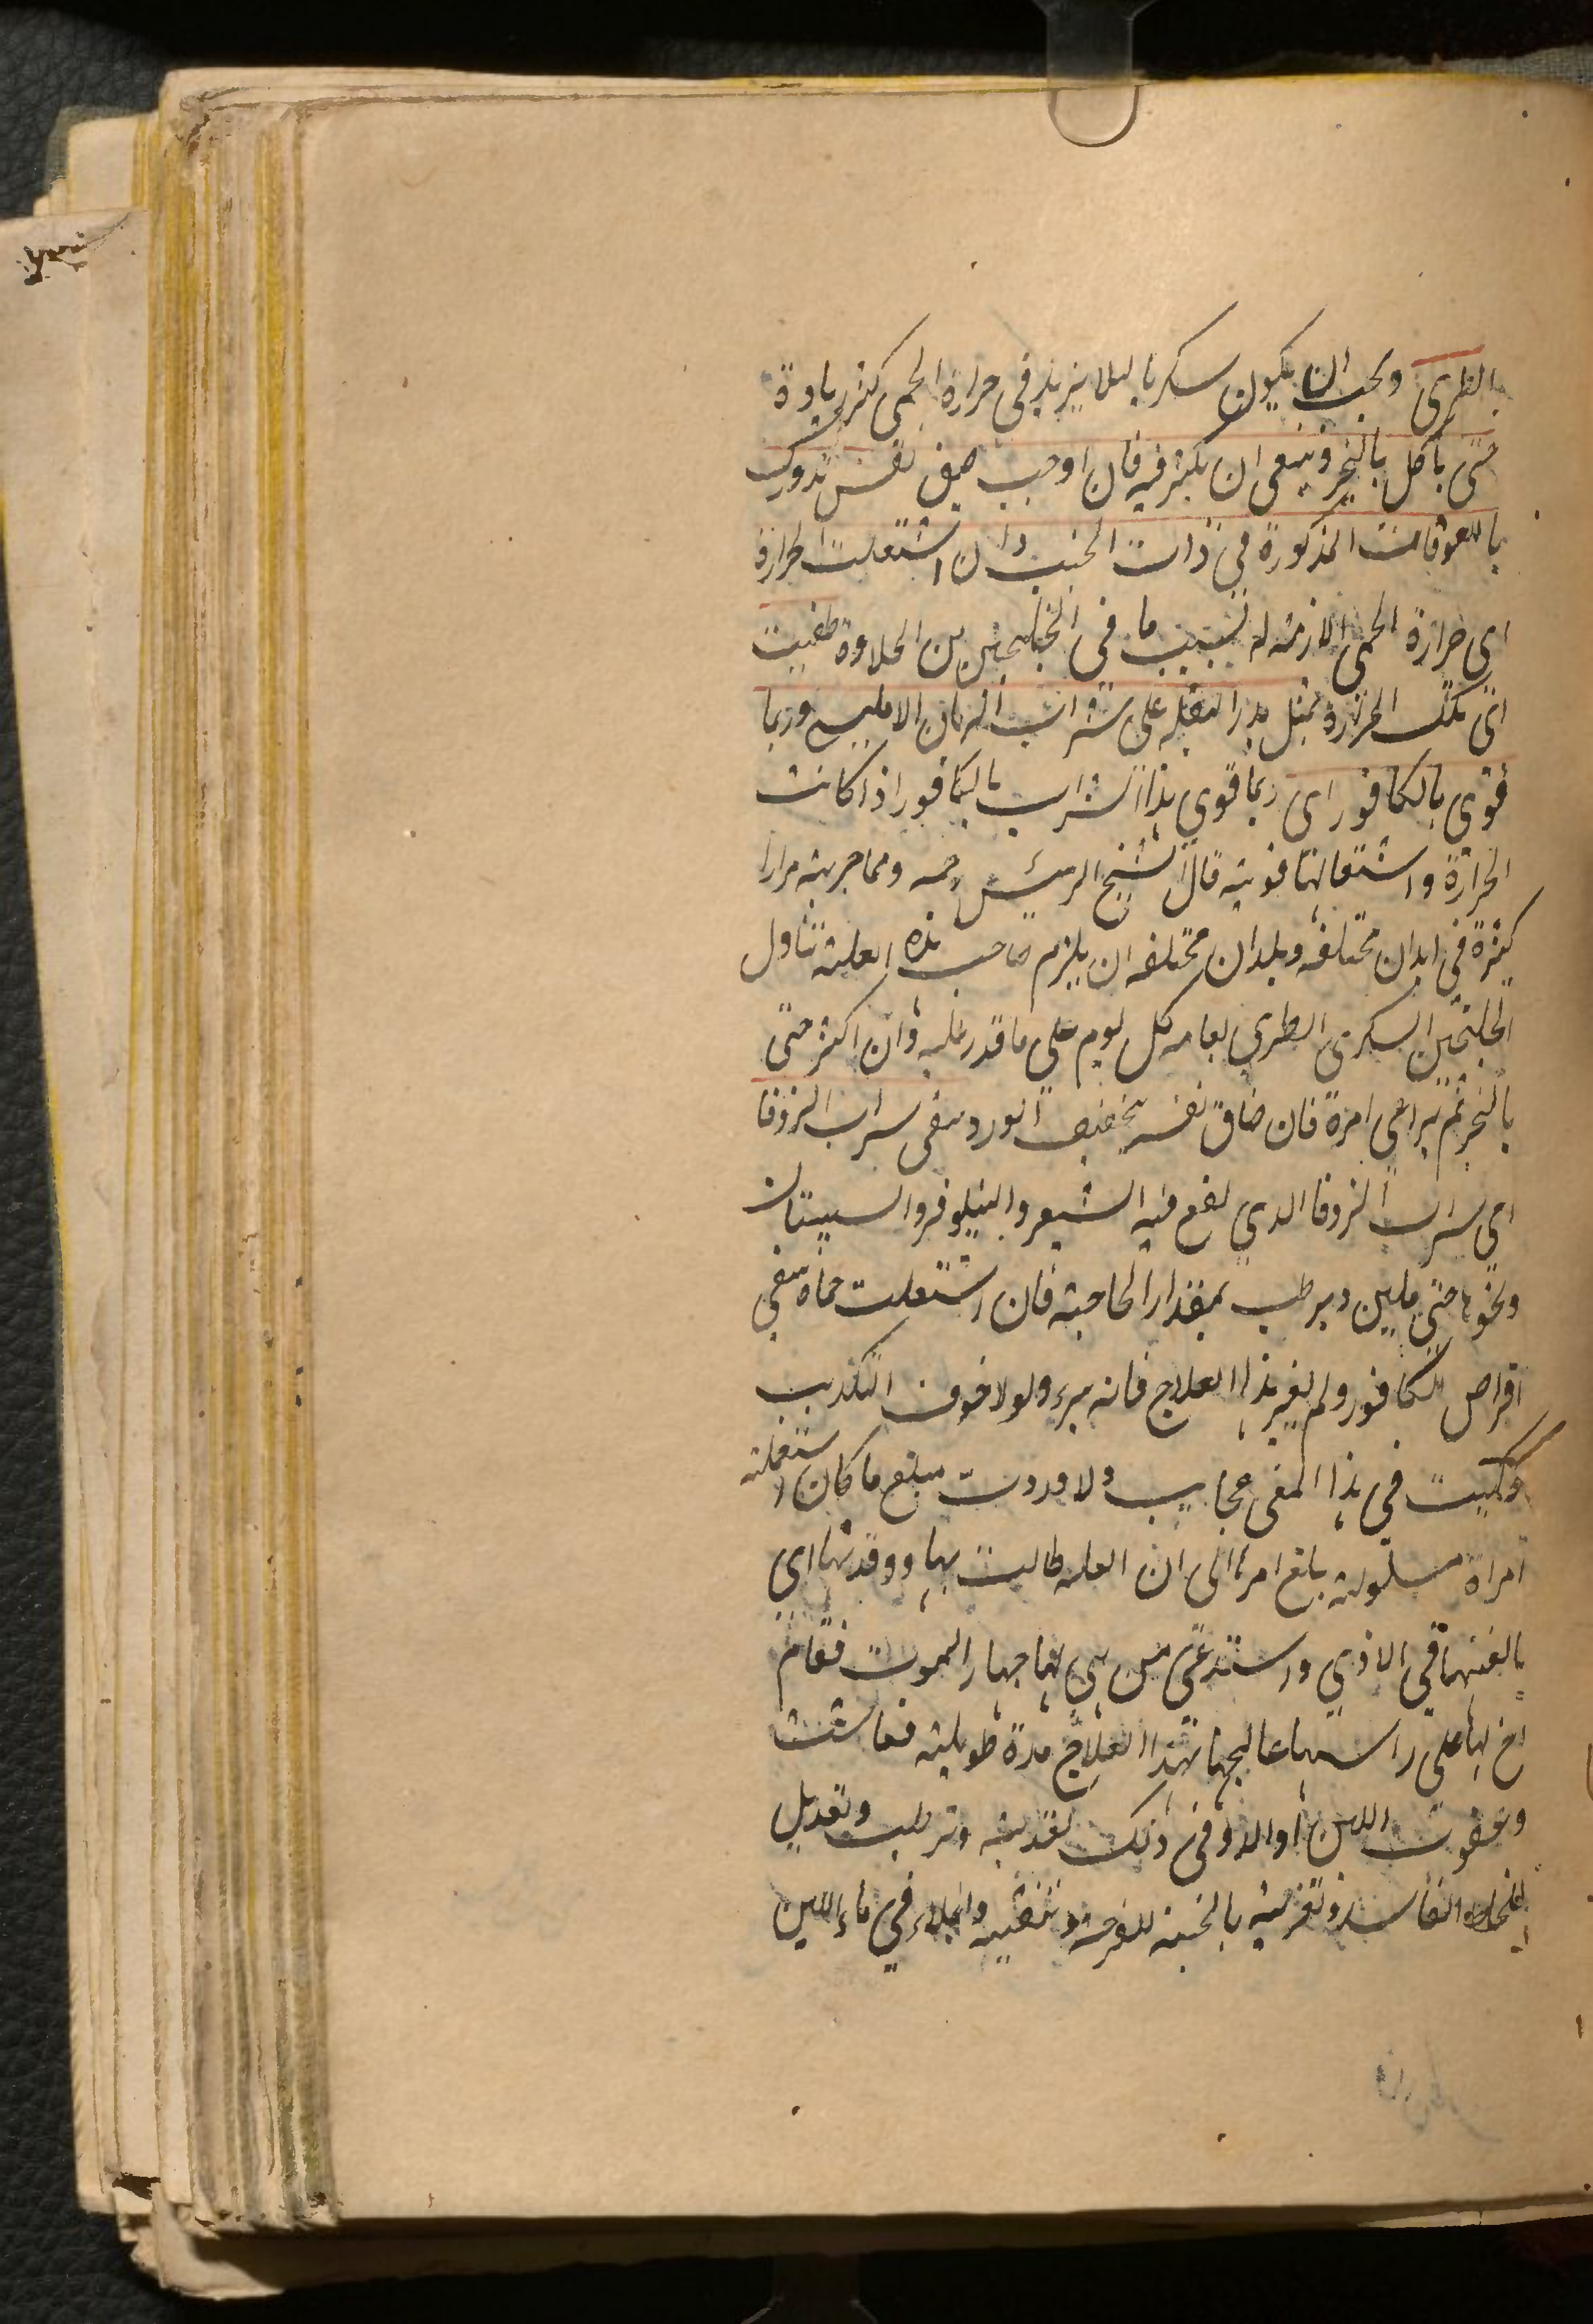 الطرى ويجب ان يكون سكريا لئلا يزيد فى حرارة الحمى كثر زيادة
حتى يأكل بالخبز وينبغى ان يكثر فيه فان اوجب ضيق نفس تدورك
باللعوقات المذكورة فى ذات الجنب وان اشتعلت الحرارة
اى حرارة الحمى اللازمة له بسبب ما فى الجلنجبين من الحلاوة طفيت
اى تلك الحرارة بمثل بزر البقلة على شراب الرمان الامليسى وربما
قوى بالكافور اى ربما قوى هذا الشراب بالكافور اذا كانت
الحرارة واشتعالها قوية قال الشيخ الرئيس رحمه ومما جربته مرارا
كثيرة فى ابدان مختلفة وبلدان مختلفة ان يلزم صاحب هذه العلة تناول
الجلنجبين السكرى الطرى لعامه كل يوم على ما قدر عليه وان اكثر حتى
بالخبز ثم يراعى امره فان ضاق نفسه بتجفيف الورد سقى شراب الزوفا
اى شراب الزوفا الذي يقع فيه الشعير والنيلوفر والسبستان
ونحوها حتى يلين ويرطب بمقدار الحاجة فان اشتعلت حماه سقى
اقراص الكافور ولم يغير هذا العلاج فانه يبرء ولولا خوف التكذيب
لحكيت فى هذا المعنى عجايب ولاوردت مبلغ ما كان استعملته
امراة مسلولة بلغ امرها الى ان العلة طالت بها و
بالغتها فى الاذى واستدعى من يهيئ لها جهاز الموت فقام
اخ لها على راسها عالجها بهذا العلاج مدة طويلة فعاشت
وعوفيت اللبن دواء وفى ذلك تغذية وترطيب وتعديل
للخلط الفاسد وتغرية بالجبنية للقرحة وتنقية وجلاء فى ماء اللبن